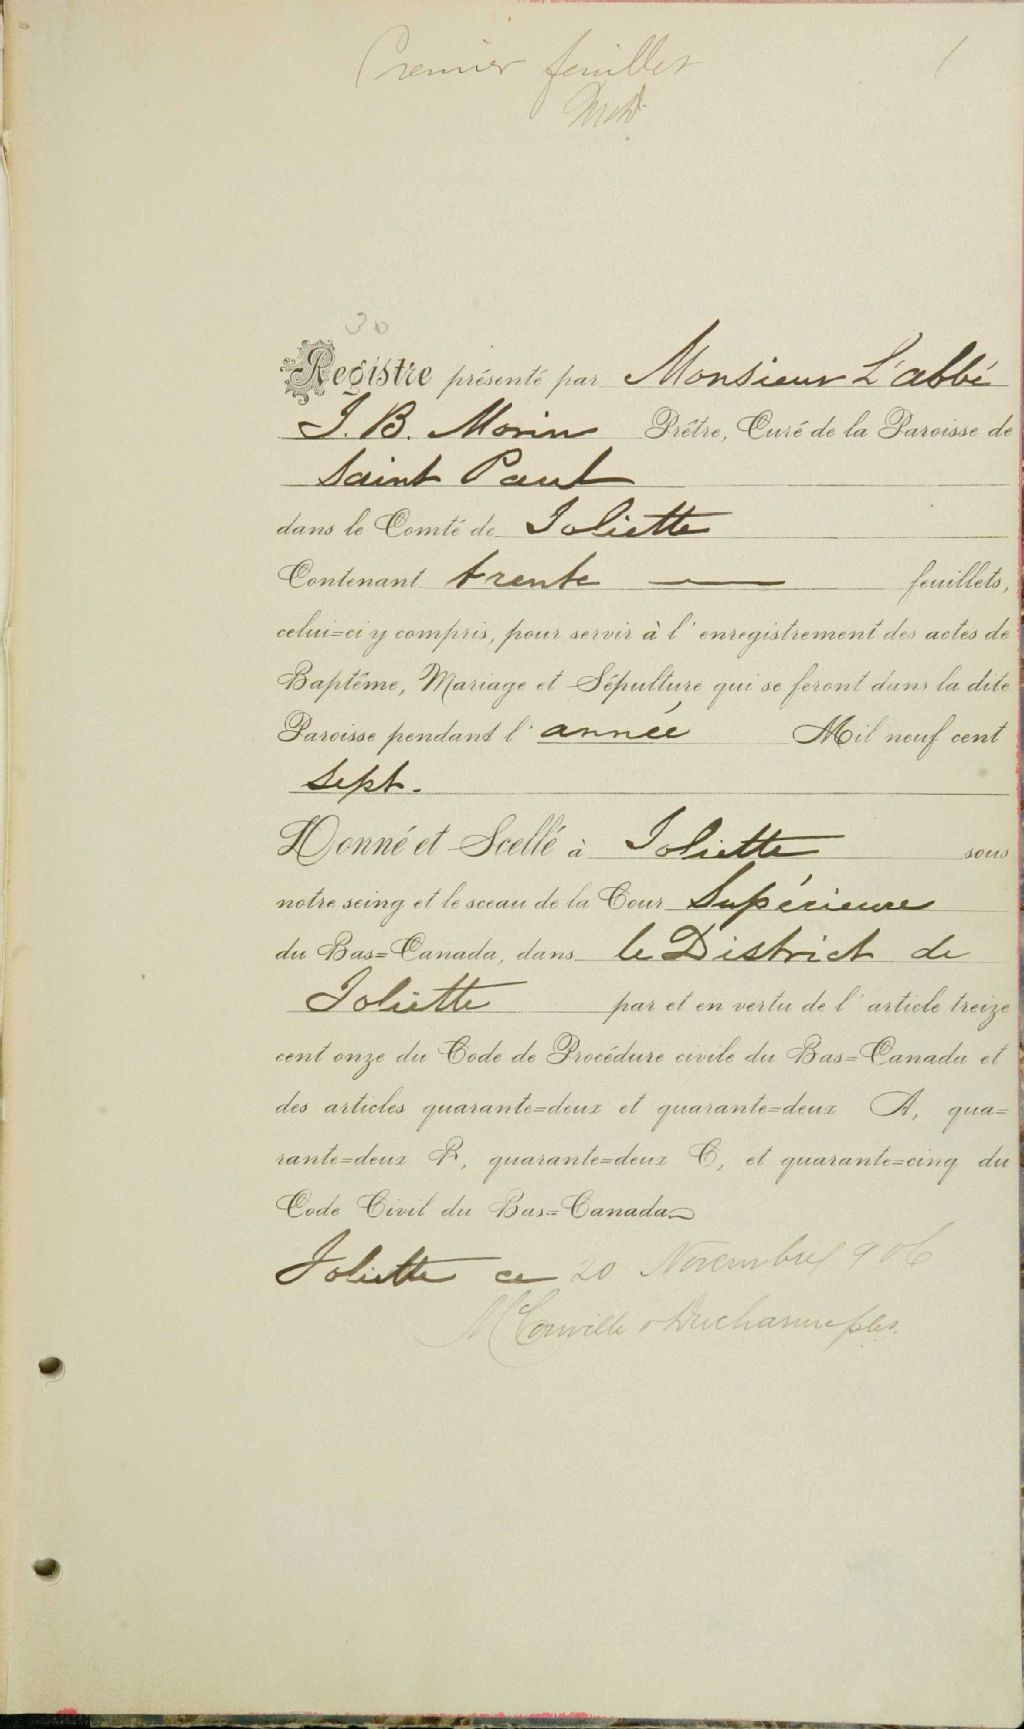 Premier feuillet 1
30
Registre présenté par Monsieur L'abbé
J. B. Morin Prêtre, Curé de la Paroisse de
Saint Paul
dans le Comté de Joliette
Contenant trente — feuillets,
celui=ci y compris, pour servir à l'enregistrement des actes de
Baptême, Mariage et Sépulture qui se feront dans la dite
Paroisse pendant l'année Mil neuf cent
sept.
Donné et Scellé à Joliette sous
notre seing et le sceau de la Cour Supérieure
du Bas=Canada, dans le District de
Joliette par et en vertu de l'article treize
cent onze du Code de Procédure civile du Bas=Canada et
des articles quarante=deux et quarante=deux A, qua=
rante=deux B, quarante=deux C, et quarante=cinq du
Code Civil du Bas=Canada
Joliette ce 20 Novembre 1906
McConville & Ducharme